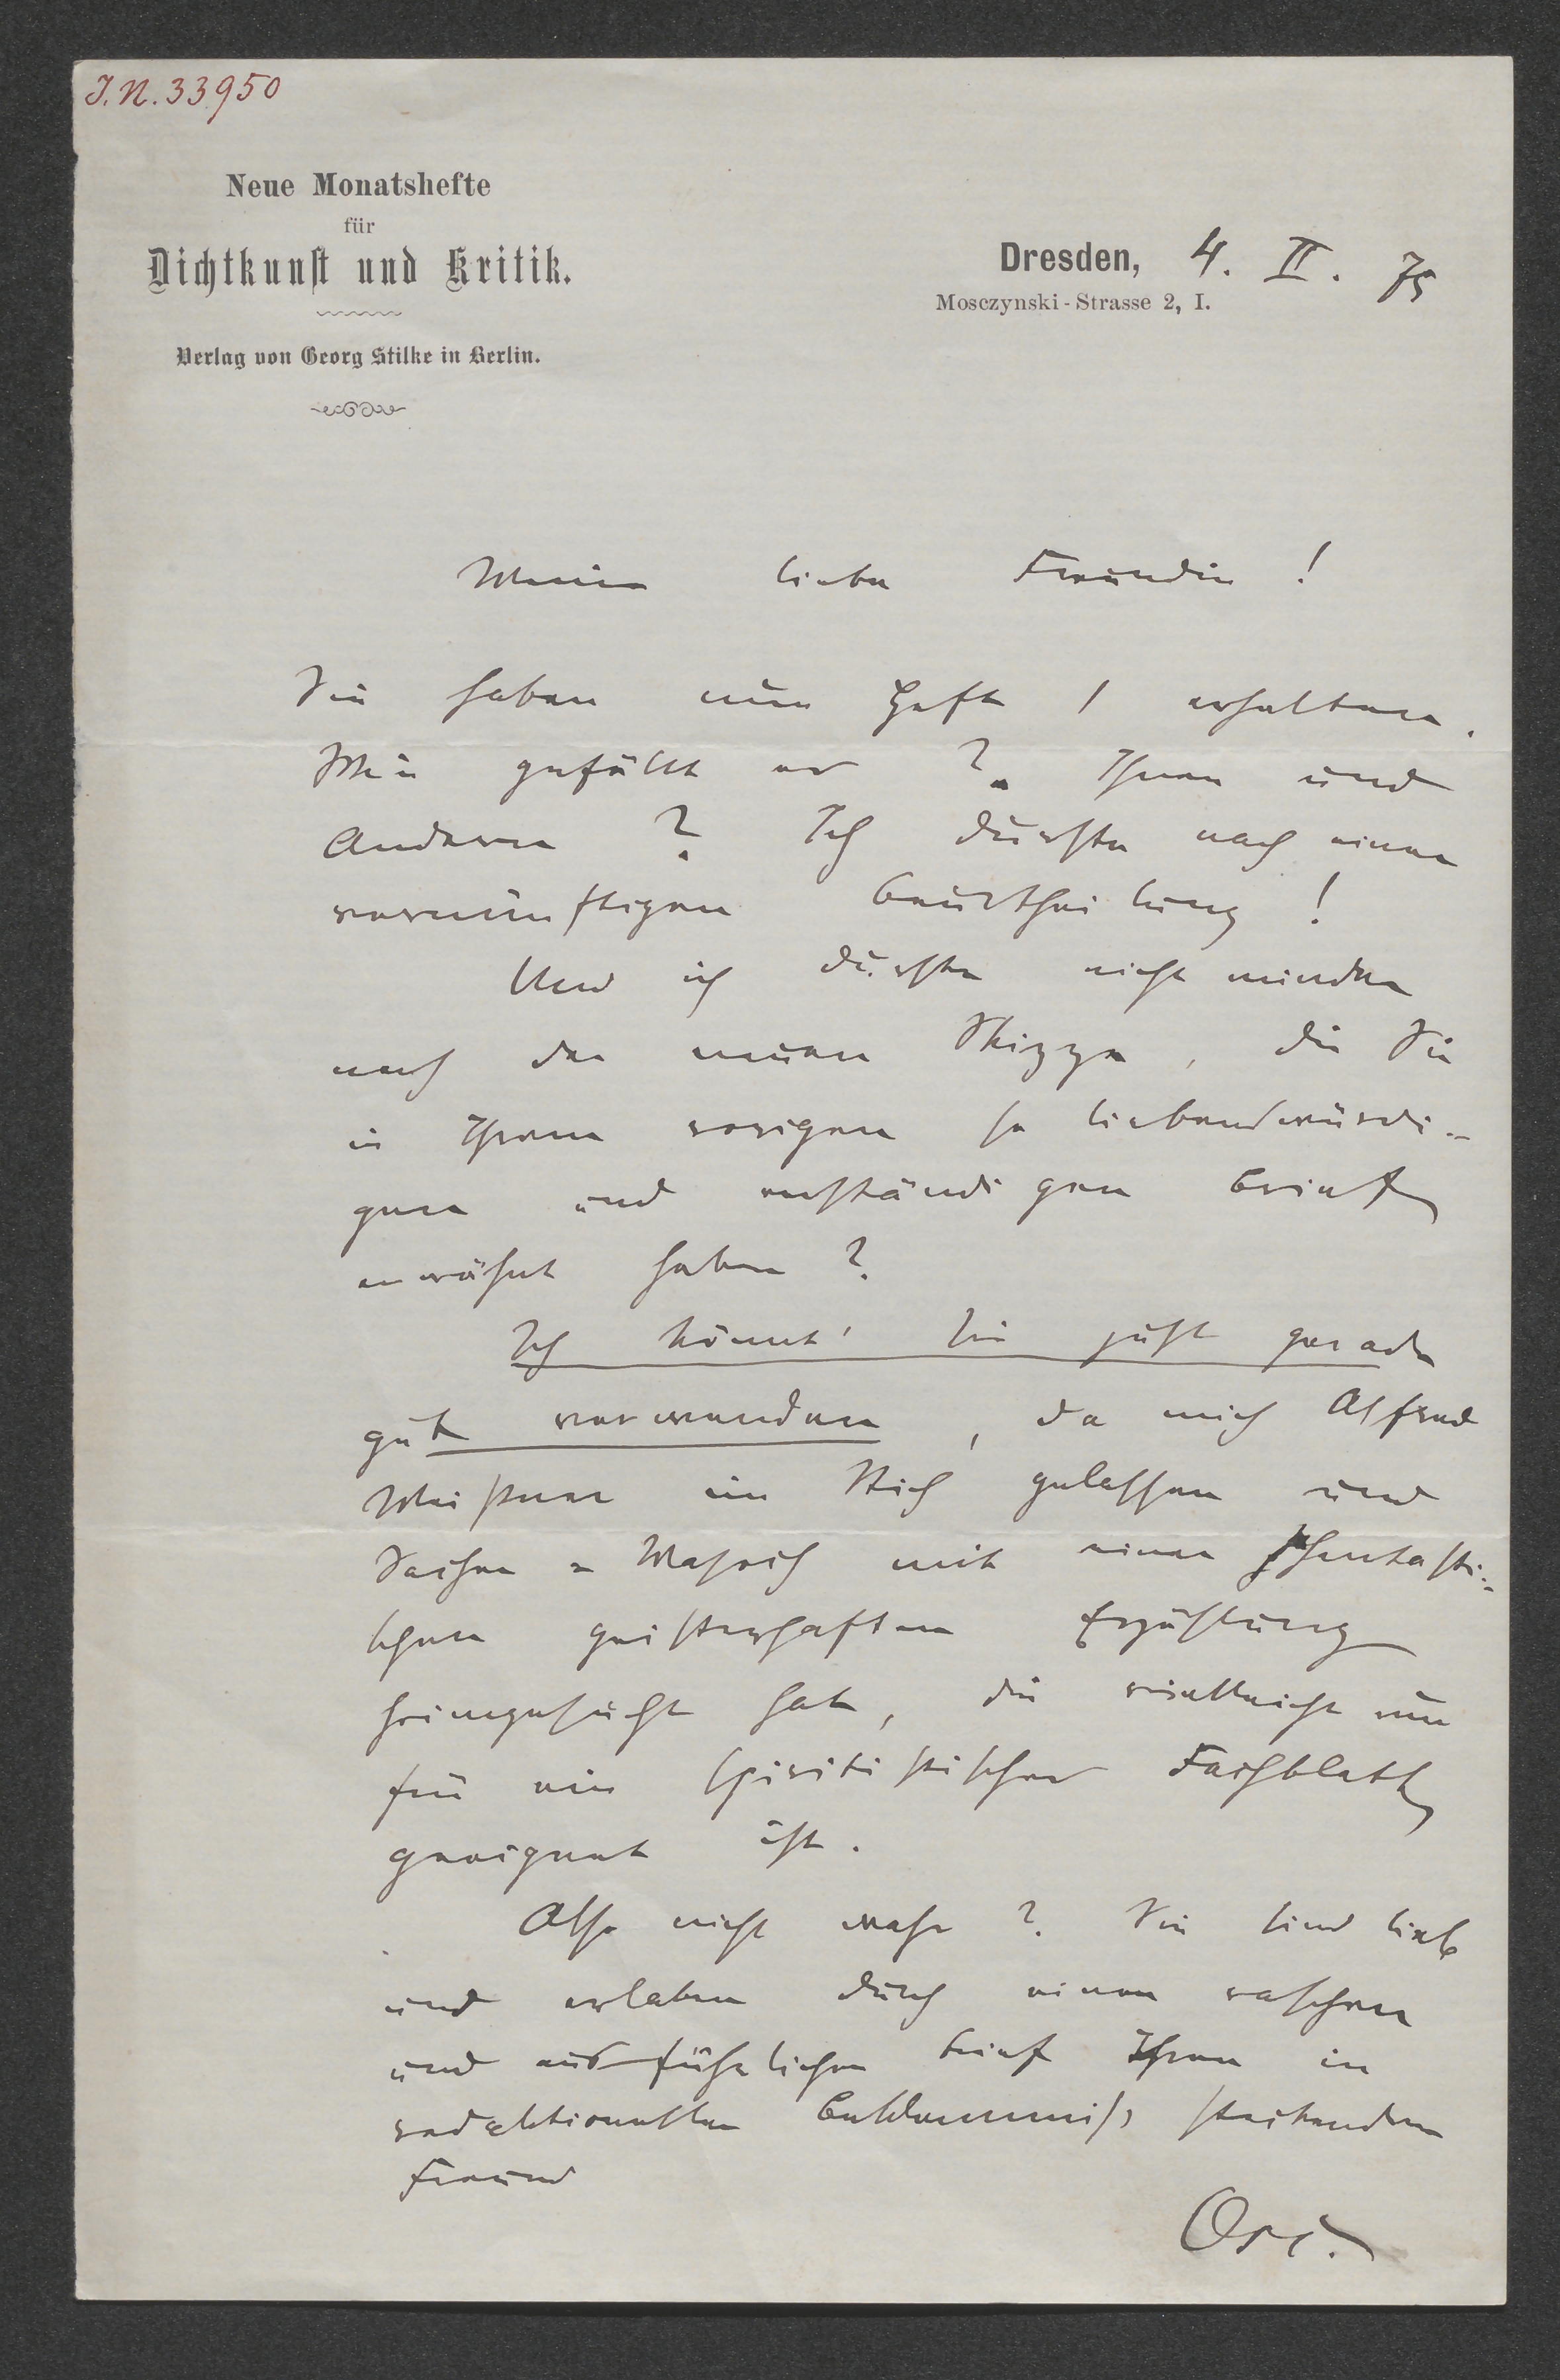 J.N. 33950
Neue Monatshefte
für
Dichtkunst und Kritik.
Verlag von Georg Stilke in Berlin.
Dresden, 4. II. 75
Mosczynski-Strasse 2, I.
Meine liebe Freundin!
Sie haben nun Heft 1 erhalten.
Wie gefällt es? Ihnen und
Anderen? Ich dürste nach einer
vernünftigen Beurtheilung!
Und ich dürste nicht minder
nach der neuen Skizze, die Sie
in Ihrem vorigen so liebenswürdi-
gen und verständigen Brief
erwähnt haben?
Ich könnt' sie just gerade
gut verwenden, da mich Alfred
Meißner im Stich gelassen und
Sacher-Masoch mit einer phantasti-
schen geisterhaften Erzählung
heimgesucht hat, die vielleicht nur
für ein spiritistisches Fachblatt
geeignet ist.
Also nicht wahr? Sie sind lieb
und erlaben durch einen raschen
und ausführlichen Brief Ihren in
redaktionellen Beklemmniß steckenden
Freund
Osc.